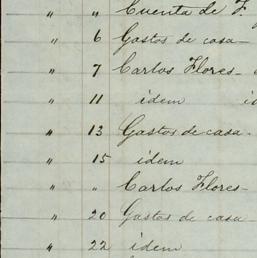 " " Cuenta de F.
" 6 Gastos de casa—
" 7 Carlos Flores—
" 11 idem
" 13 Gastos de casa.
" 15 idem
" " Carlos Flores—
" 20 Gastos de casa—
" 22 idem